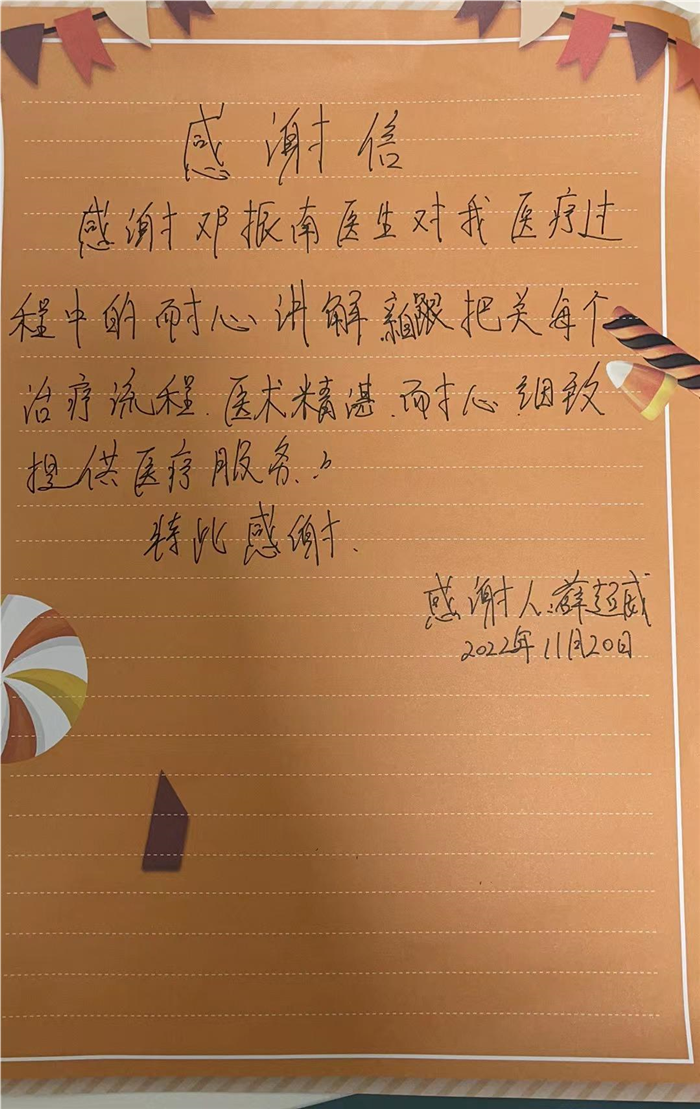 感谢信
感谢邓振南医生对我医疗过
程中的耐心讲解亲自跟把关每个
治疗流程.医术精湛.耐心细致
提供医疗服务.
特此感谢.
感谢人:薛超威
2022年11月20日